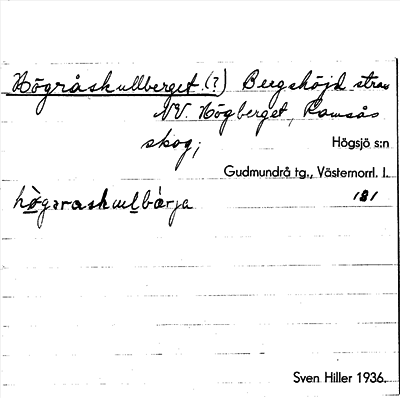 Högråskullberget (?) Bergshöjd strax
NV. Högberget, Ramsås
skog;
Högsjö s:n
Gudmundrå tg., Västernorrl. l.
högəraskulbärja
181
Sven Hiller 1936.